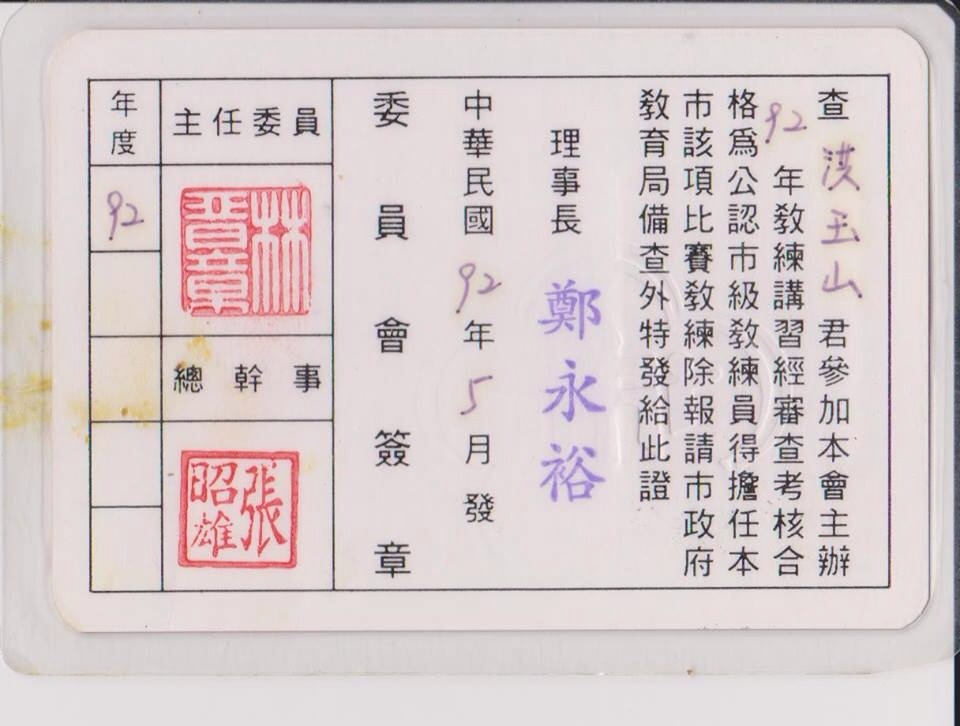 查洪玉山君參加本會主辦
92年教練講習經審查考核合
格爲公認市級教練員得擔任本
市該項比賽教練除報請市政府
教育局備查外特發給此證
理事長 鄭永裕
中華民國92年5月發
委員會簽章
主任委員
林晉章
總幹事
張昭雄
年度
92